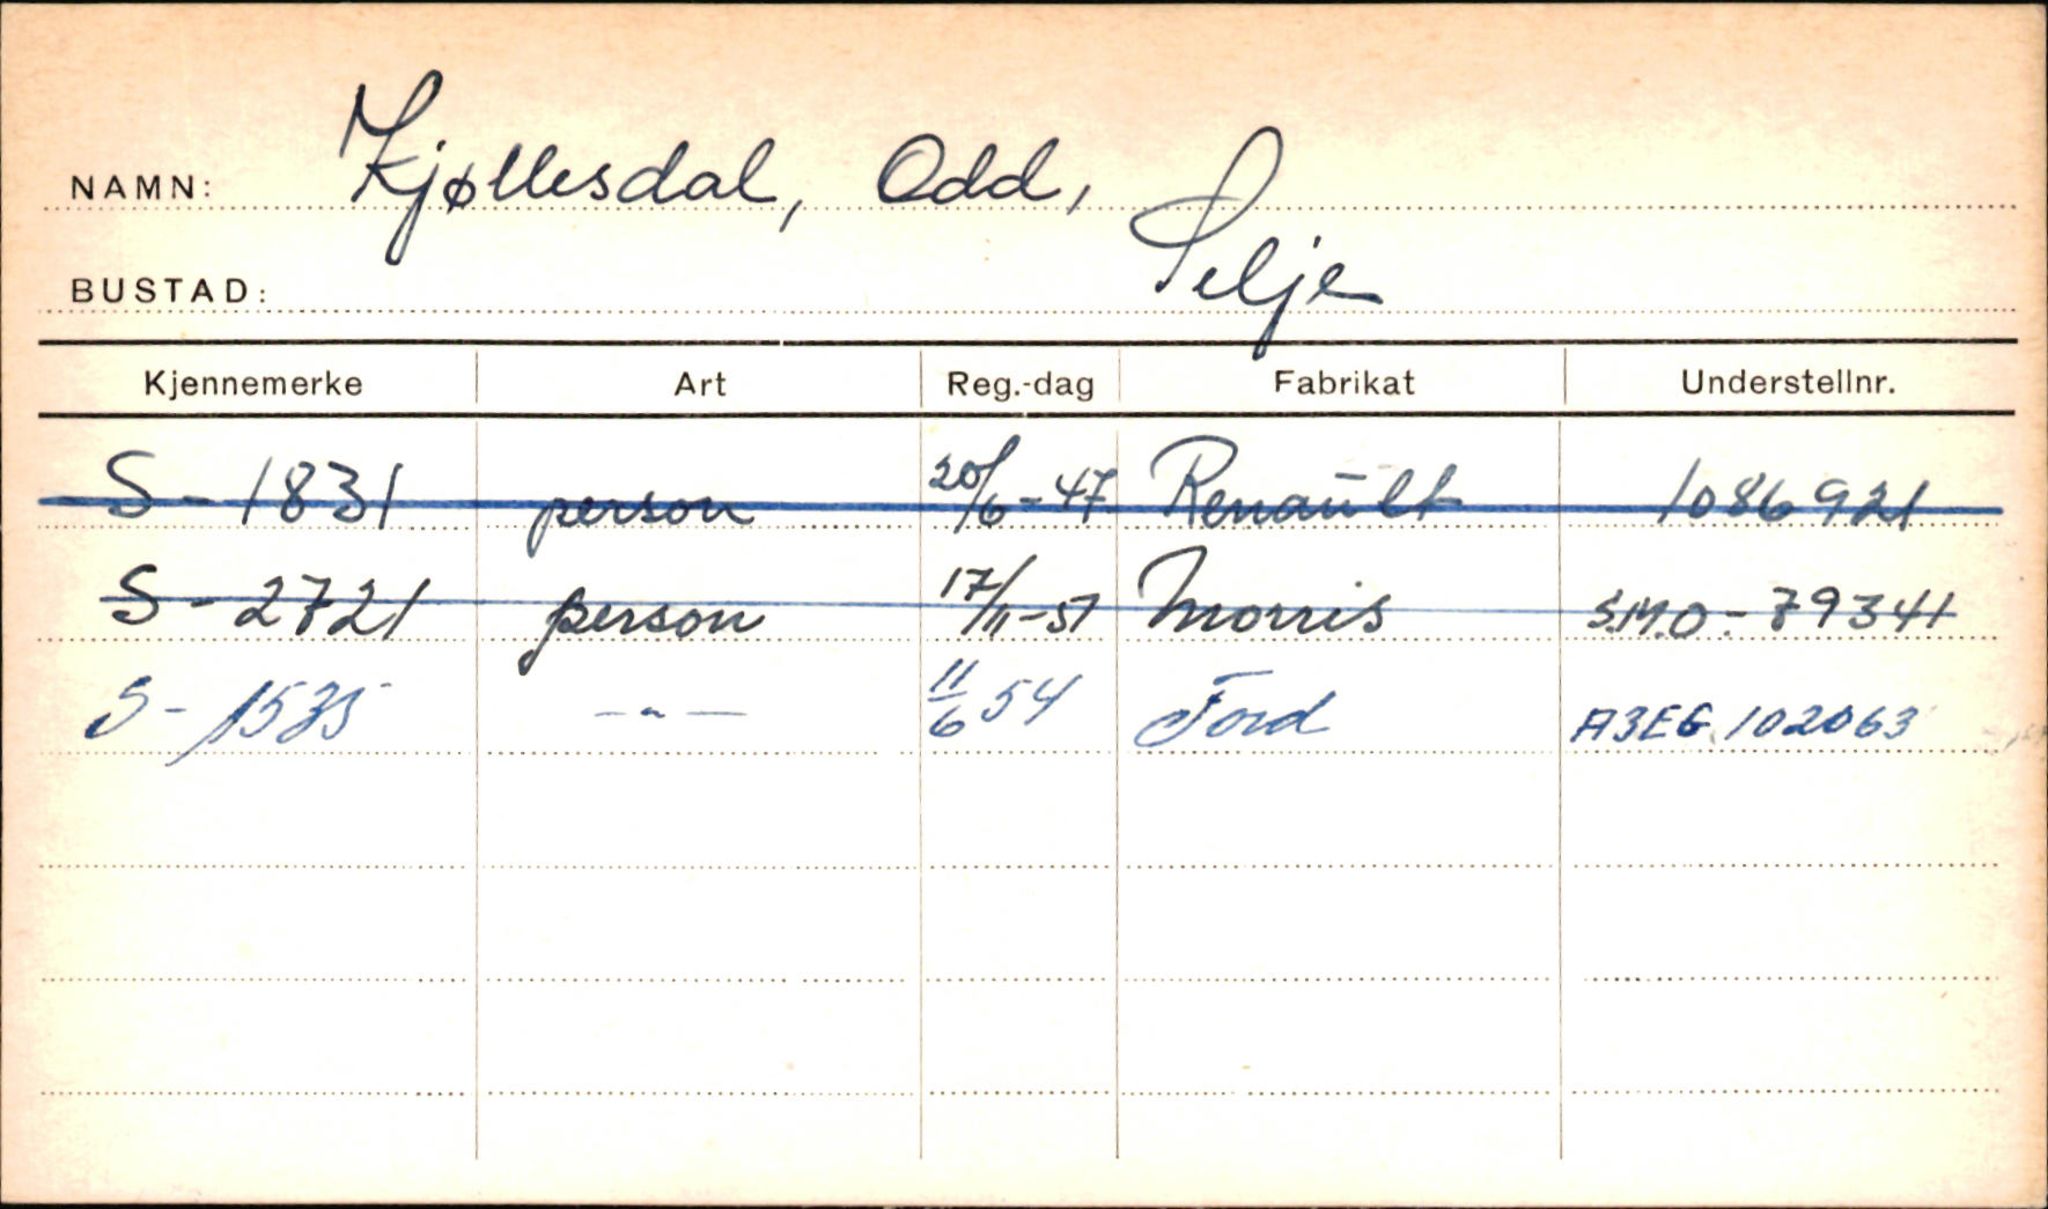 NAMN: Kjøllesdal, Odd,
BUSTAD: Selje
Kjennemerke Art Reg.-dag Fabrikat Understellnr.
S-1831 person 20/6-47 Renault 1086921
S-2721 person 17/11-51 Morris S.M.O-79341
S-1535 -"- 11/6 54 Ford A3EG 102063